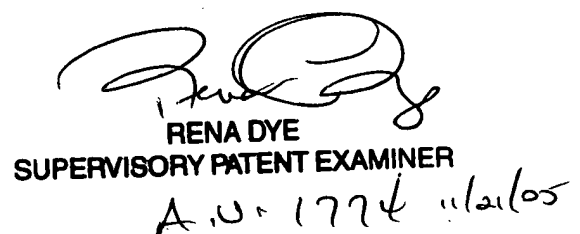 Rena Dye
RENA DYE
SUPERVISORY PATENT EXAMINER
A.U. 1774 11/21/05